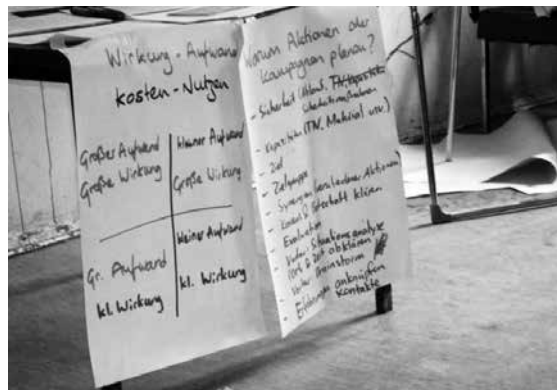 Wirkung - Aufwand
Kosten - Nutzen
Großer Aufwand
Große Wirkung
kleiner Aufwand
Große Wirkung
Gr. Aufwand
kl. Wirkung
kleiner Aufwand
kl. Wirkung
Warum Aktionen oder
Kampagnen planen?
- Sicherheit
- Kapazitäten (TN, Material usw.)
- Ziel
- Zielgruppe
- Synergien verschiedener Aktionen)
- Konsens & klären
- Evaluation
- Vorher: Situationsanalyse
Ort & Zeit abklären
- Vorher Brainstorm
- Erfahrungen anknüpfen
- Kontakte